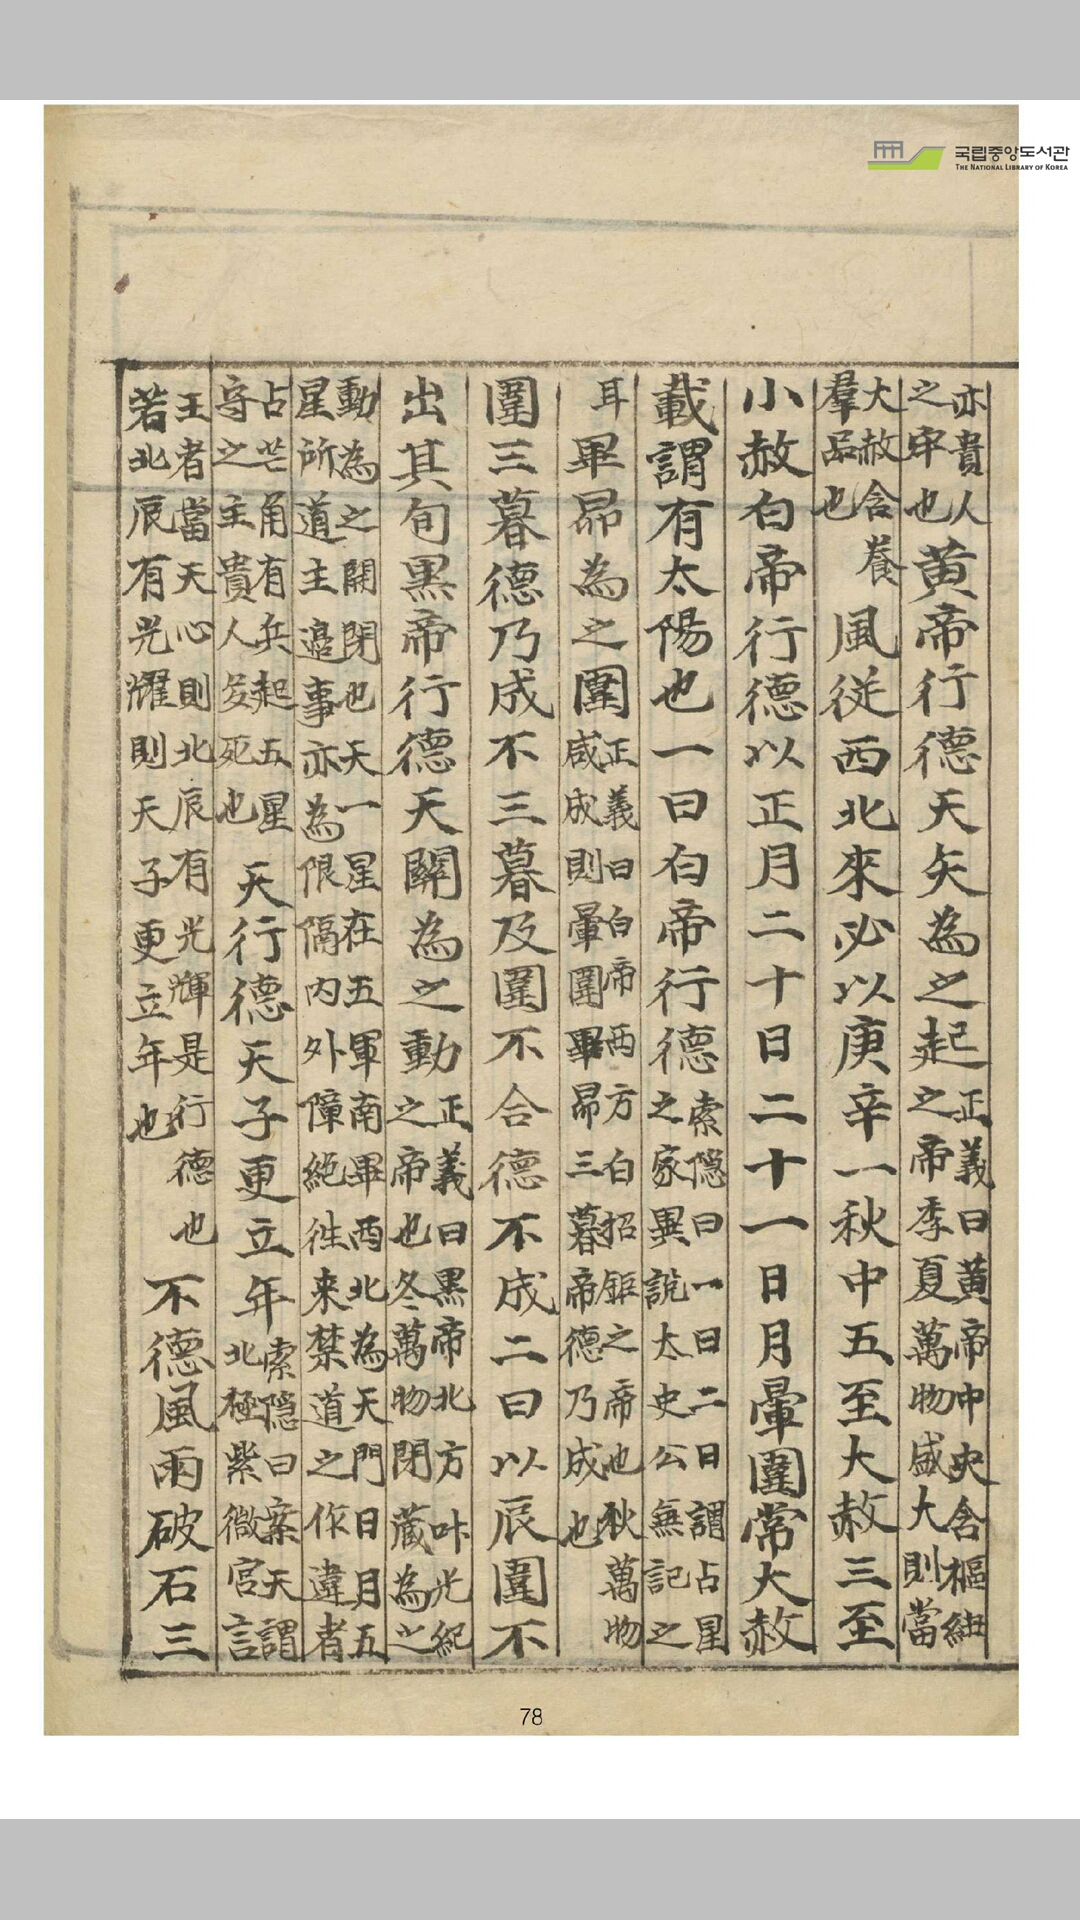 국립중앙도서관
THE NATIONAL LIBRARY OF KOREA
亦貴人
之牢也
黃帝行德天矢為之起
正義曰黃帝中央含樞紐
之帝季夏萬物盛大則當
大赦含養
羣品也
風從西北來必以庚辛一秋中五至大赦三至
小赦白帝行德以正月二十日二十一日月暈圍常大赦
載謂有太陽也一曰白帝行德
索隱曰一曰二日謂占星
之家異說太史公無記之
耳
畢昴為之圍
正義曰白帝西方白招鉅之帝也秋萬物
咸成則暈圍畢昴三暮帝德乃成也
圍三暮德乃成不三暮及圍不合德不成二曰以辰圍不
出其旬黑帝行德天關為之動
正義曰黑帝北方叶光紀
之帝也冬萬物閉藏為之
動為之開閉也天一星在五軍南畢西北為天門日月五
星所道主邉事亦為限隔内外障絶徃来禁道之作違者
占芒角有兵起五星
守之主貴人多死也
天行德天子更立年
索隱曰案天謂
北極紫微宮言
王者當天心則北辰有光輝是行德也
若北辰有光耀則天子更立年也
不德風雨破石三
78